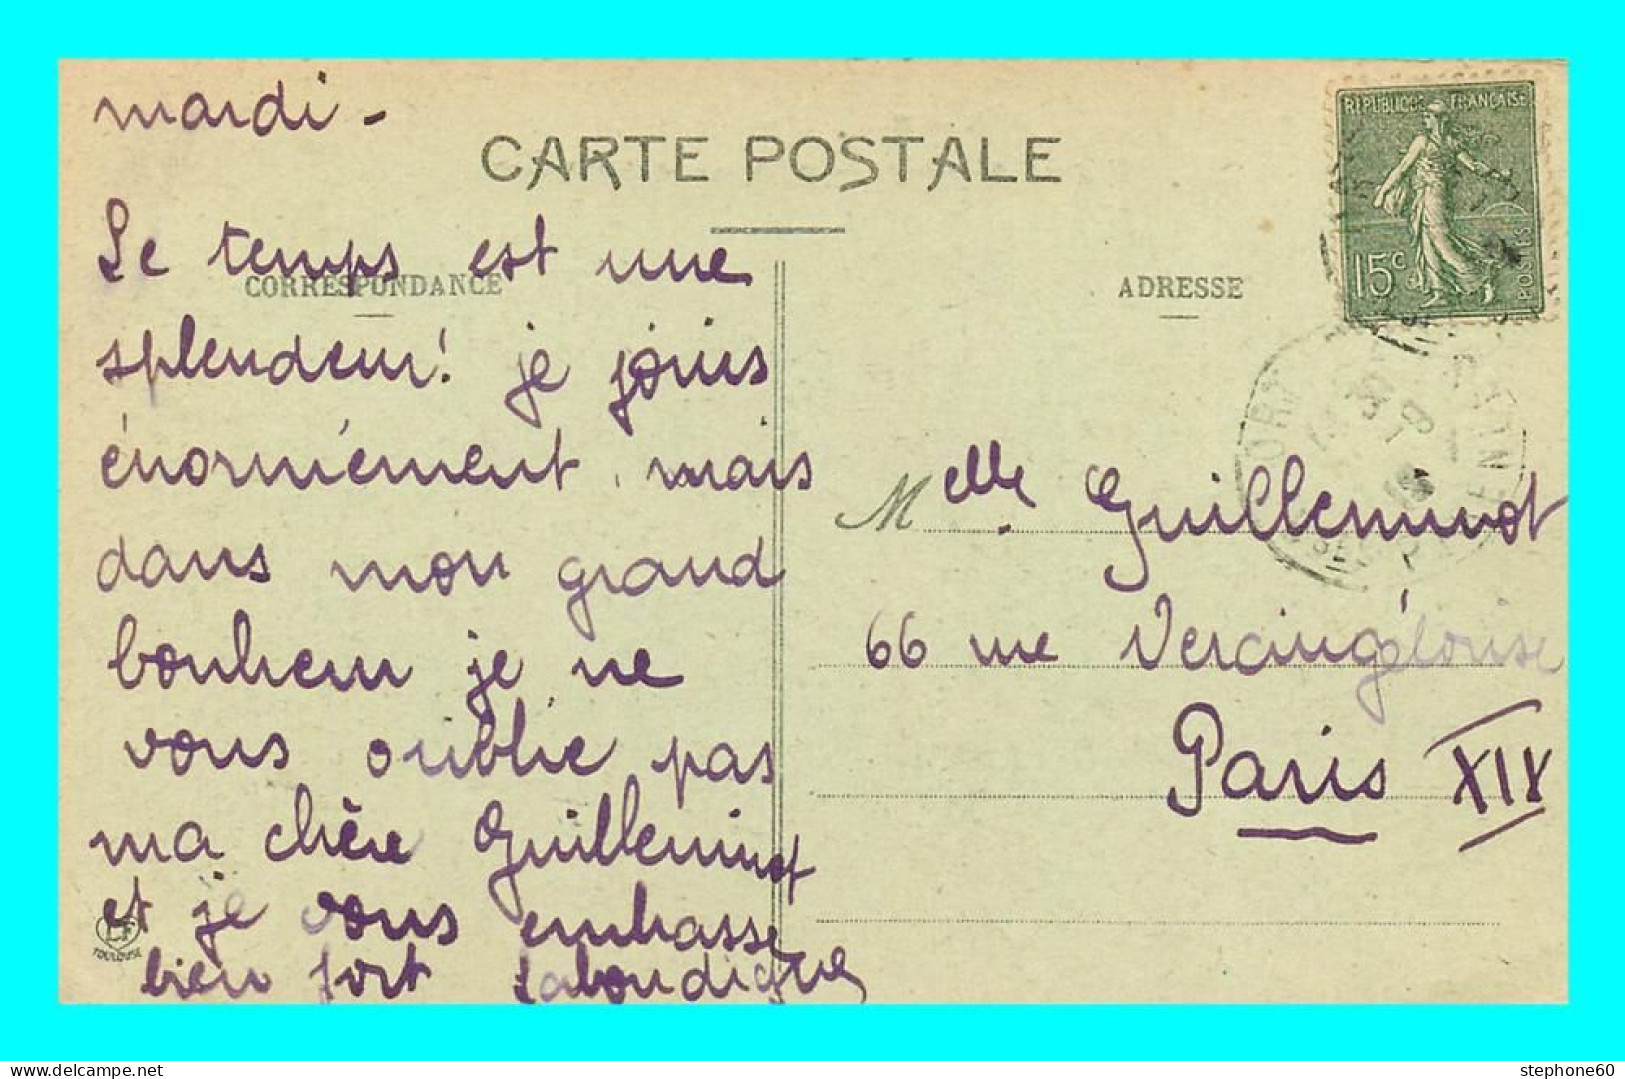 mardi -
CARTE POSTALE
Le temps est une
CORRESPONDANCE
splendeur! je jouis
énormément, mais
dans mon grand
bonheur je ne
vous oublie pas
ma chère Guilleminot
et je vous embrasse
bien fort
LF
TOULOUSE
REPUBLIQUE FRANÇAISE
15c
POSTES
ADRESSE
Melle Guilleminot
66 rue Vercingétorise
Paris XIV
delcampe.net
stephone60